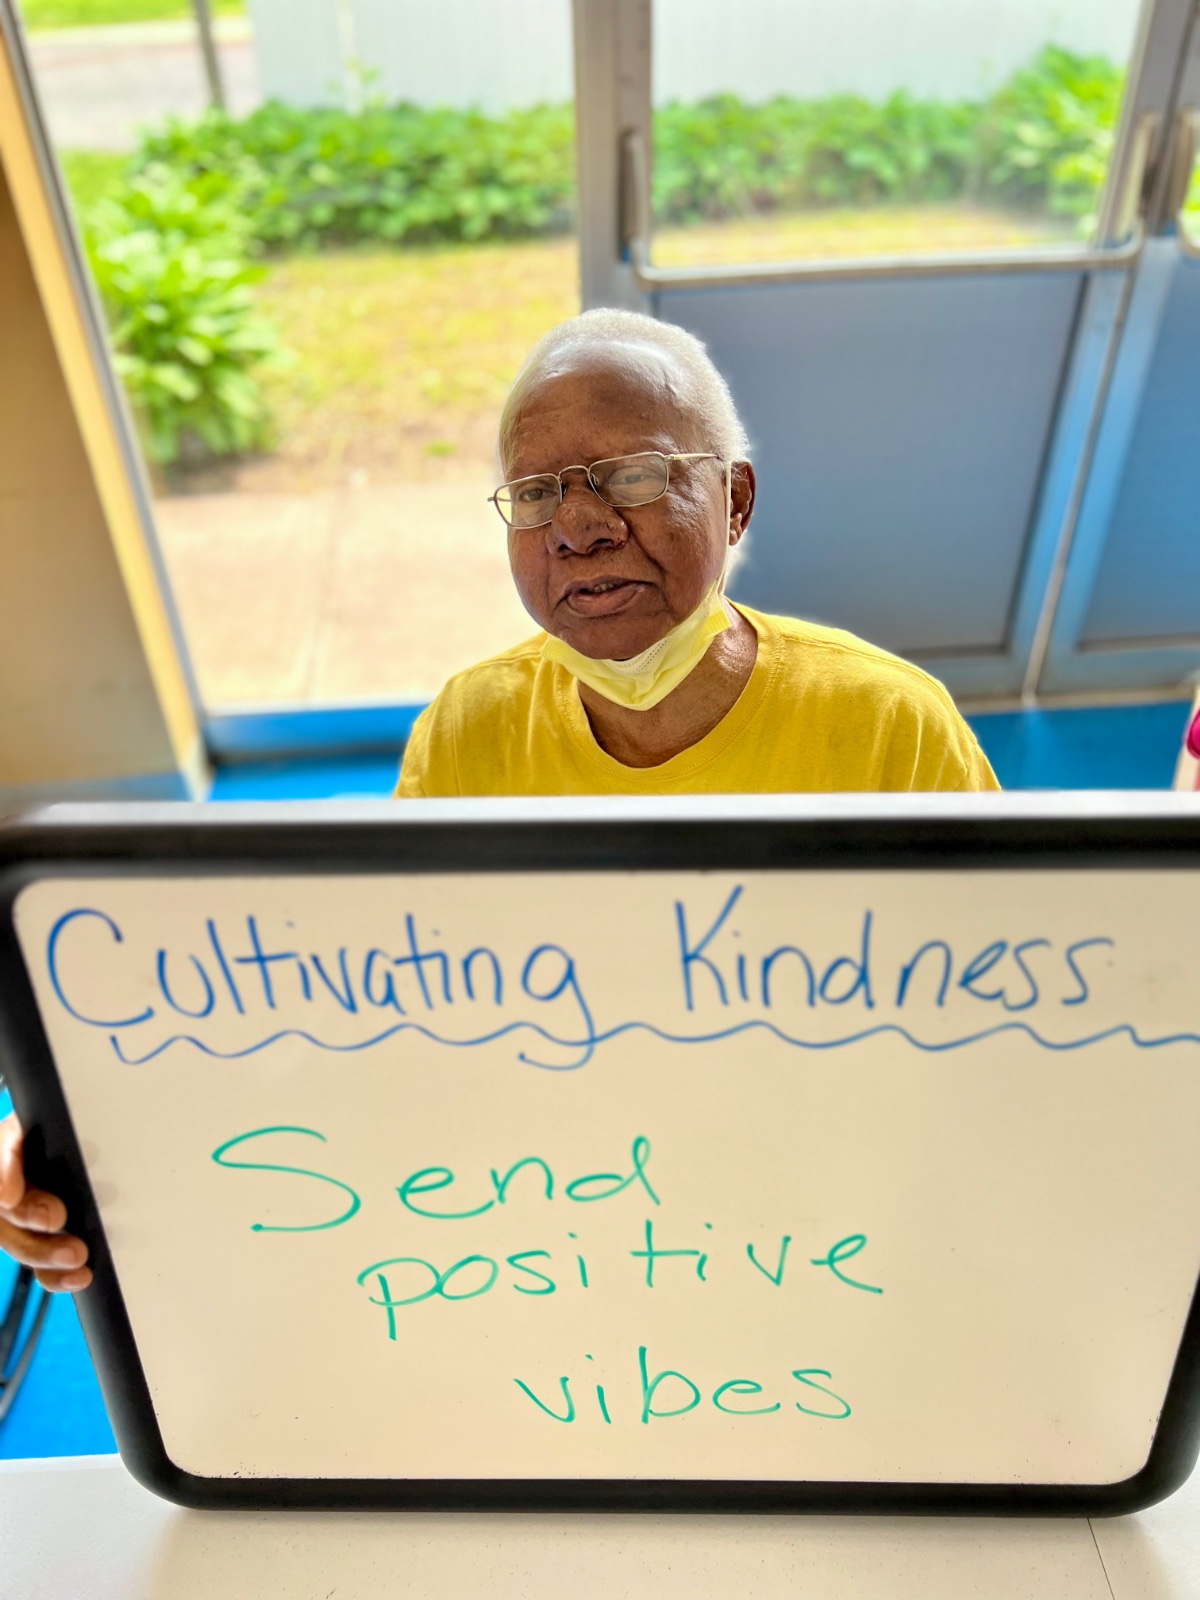 Cultivating Kindness
Send
positive
vibes